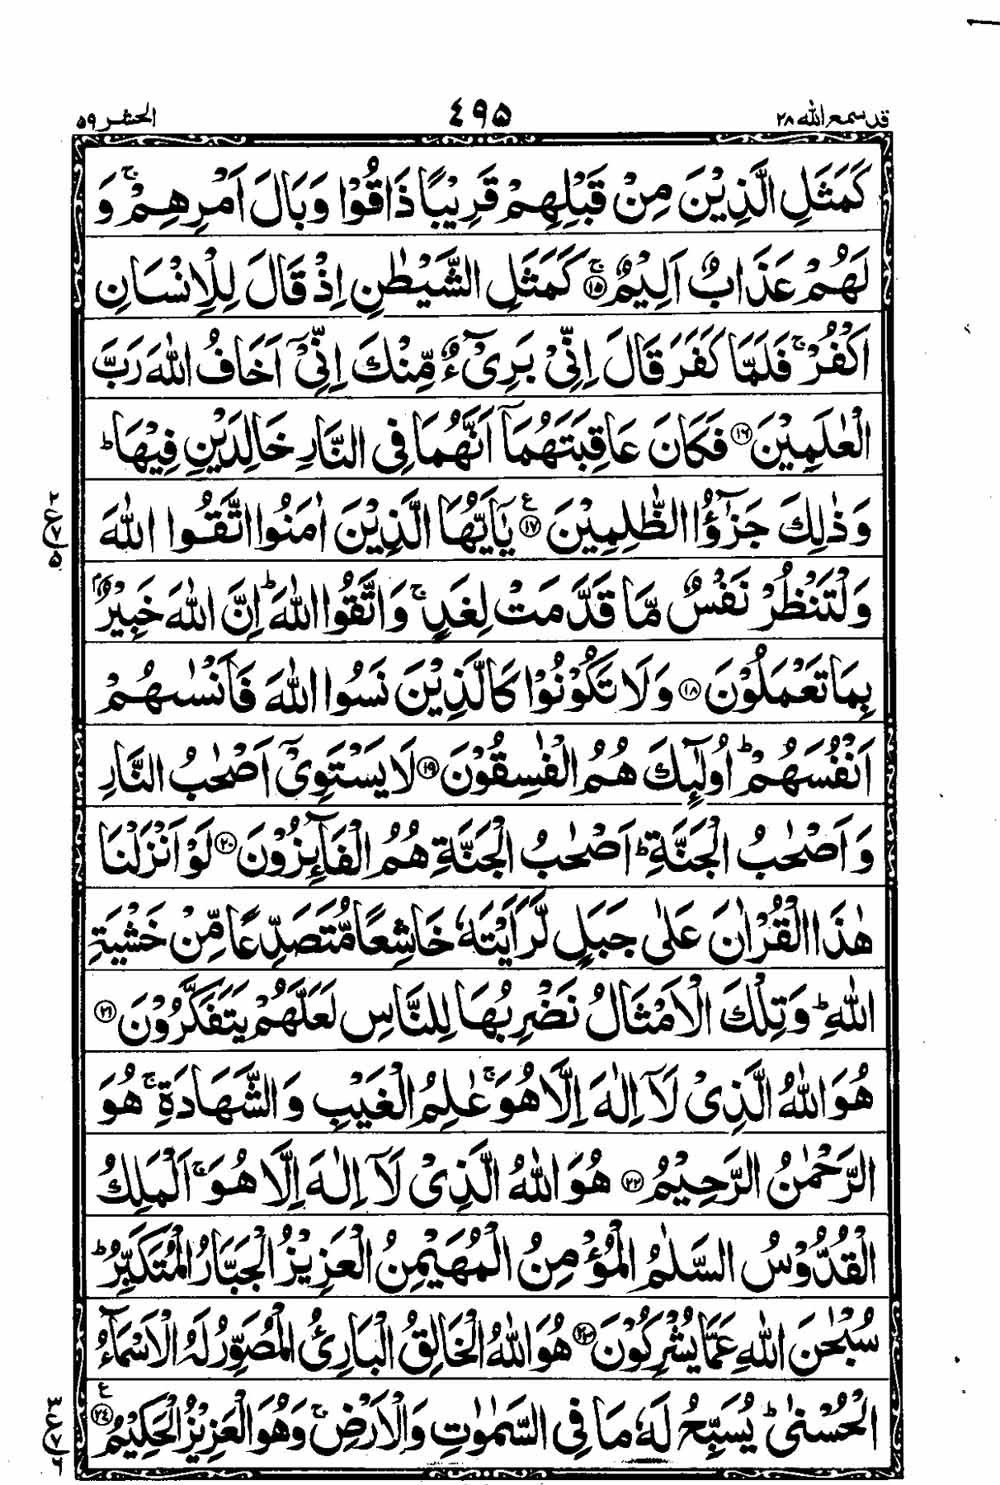 قد سمع الله ٢٨
٤٩٥
الحشر ٥٩
كَمَثَلِ الَّذِيْنَ مِنْ قَبْلِهِمْ قَرِيْبًا ذَاقُوْا وَبَالَ اَمْرِهِمْ ۚ وَ
لَهُمْ عَذَابٌ اَلِيْمٌ ۚ ﴿١٥﴾ كَمَثَلِ الشَّيْطٰنِ اِذْ قَالَ لِلْاِنْسَانِ
اكْفُرْ ۚ فَلَمَّا كَفَرَ قَالَ اِنِّىْ بَرِىْٓءٌ مِّنْكَ اِنِّىْٓ اَخَافُ اللّٰهَ رَبَّ
الْعٰلَمِيْنَ ﴿١٦﴾ فَكَانَ عَاقِبَتَهُمَآ اَنَّهُمَا فِى النَّارِ خَالِدَيْنِ فِيْهَا ؕ
وَذٰلِكَ جَزٰٓؤُا الظّٰلِمِيْنَ ﴿١٧﴾ ع يٰٓاَيُّهَا الَّذِيْنَ اٰمَنُوا اتَّقُوا اللّٰهَ
٢
ع ٧
٥
وَلْتَنْظُرْ نَفْسٌ مَّا قَدَّمَتْ لِغَدٍ ۚ وَاتَّقُوا اللّٰهَ ؕ اِنَّ اللّٰهَ خَبِيْرٌۢ
بِمَا تَعْمَلُوْنَ ﴿١٨﴾ وَلَا تَكُوْنُوْا كَالَّذِيْنَ نَسُوا اللّٰهَ فَاَنْسٰىهُمْ
اَنْفُسَهُمْ ؕ اُولٰٓئِكَ هُمُ الْفٰسِقُوْنَ ﴿١٩﴾ لَا يَسْتَوِىْٓ اَصْحٰبُ النَّارِ
وَاَصْحٰبُ الْجَنَّةِ ؕ اَصْحٰبُ الْجَنَّةِ هُمُ الْفَآئِزُوْنَ ﴿٢٠﴾ لَوْ اَنْزَلْنَا
هٰذَا الْقُرْاٰنَ عَلٰى جَبَلٍ لَّرَاَيْتَهٗ خَاشِعًا مُّتَصَدِّعًا مِّنْ خَشْيَةِ
اللّٰهِ ؕ وَتِلْكَ الْاَمْثَالُ نَضْرِبُهَا لِلنَّاسِ لَعَلَّهُمْ يَتَفَكَّرُوْنَ ﴿٢١﴾
هُوَ اللّٰهُ الَّذِىْ لَآ اِلٰهَ اِلَّا هُوَ ۚ عٰلِمُ الْغَيْبِ وَالشَّهَادَةِ ۚ هُوَ
الرَّحْمٰنُ الرَّحِيْمُ ﴿٢٢﴾ هُوَ اللّٰهُ الَّذِىْ لَآ اِلٰهَ اِلَّا هُوَ ۚ اَلْمَلِكُ
الْقُدُّوْسُ السَّلٰمُ الْمُؤْمِنُ الْمُهَيْمِنُ الْعَزِيْزُ الْجَبَّارُ الْمُتَكَبِّرُ ؕ
سُبْحٰنَ اللّٰهِ عَمَّا يُشْرِكُوْنَ ﴿٢٣﴾ هُوَ اللّٰهُ الْخَالِقُ الْبَارِئُ الْمُصَوِّرُ لَهُ الْاَسْمَآءُ
الْحُسْنٰى ؕ يُسَبِّحُ لَهٗ مَا فِى السَّمٰوٰتِ وَالْاَرْضِ ۚ وَهُوَ الْعَزِيْزُ الْحَكِيْمُ ﴿٢٤﴾ ع
٣
ع ٧
٦